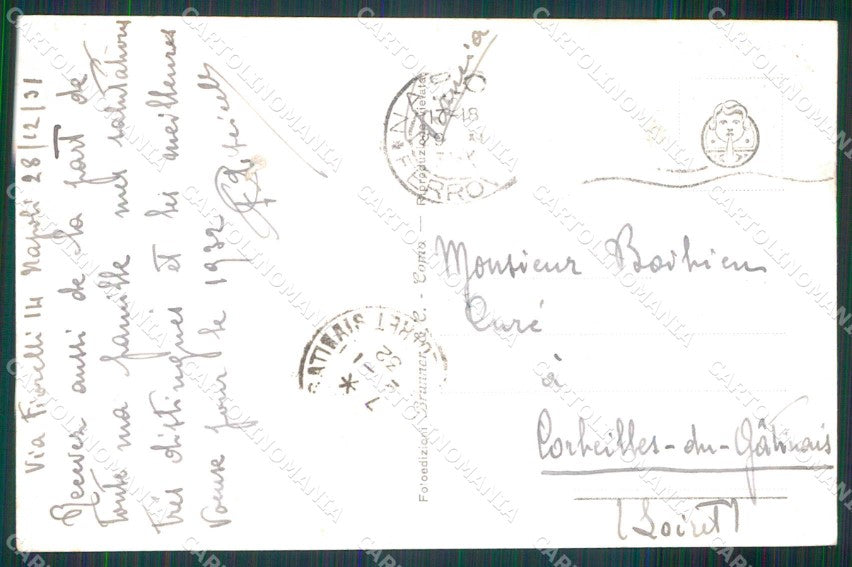 Via Fiorelli 14 Napoli 28/12/31
Recevez aussi de la part de
toute ma famille mes salutations
très distingués et les meilleures
voeux pour le 1932
Francia
NA
FERRO
Monsieur Barbier
Curé
à
Corbeilles-du-Gâtinais
(Loiret)
Fotoedizioni Brunner & C. - Como — Riproduzione vietata
GATINAIS
CARTOLINOMANIA